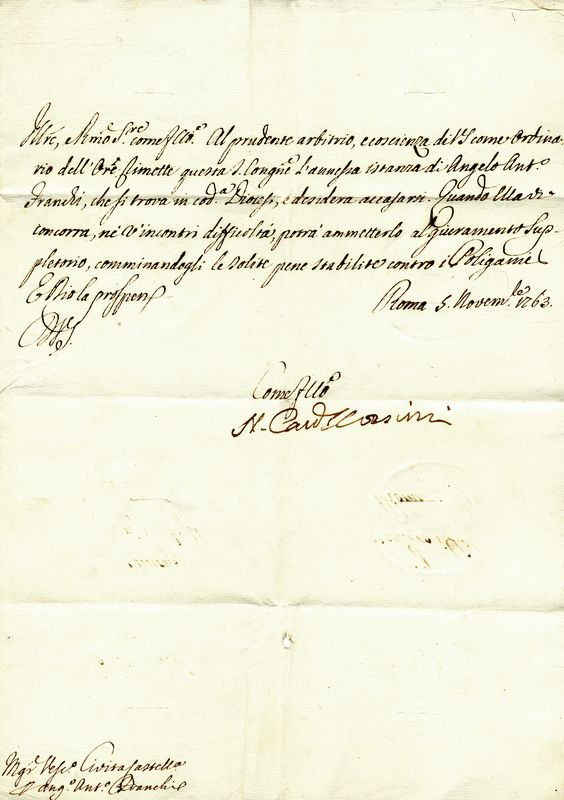 Ill.re, e R.mo Sig.re come fr͞llo. Al prudente arbitrio, e coscienza di V.S. come Ordina-
rio dell'Or.e rimette questa S. Cong.ne l'annessa istanza di Angelo Ant.o
Franchi, che si trova in cod.a Diocesi, e desidera accasarsi. Quando Ella vi
concorra, nè v'incontri difficoltà, potrà ammetterlo al Giuramento Sup-
pletorio, comminandogli le solite pene stabilite contro i Poligami
E Dio la prosperi
Roma 5. Novem.e 1763.
Come fr͞llo
N. Card. Corsini
Mgr Vesc.o Civita Castello
Ang.o Ant.o Franchi